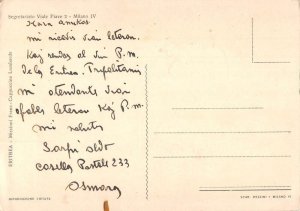 Segretariato Viale Piave 2 - Milano IV
Kara amikos
mi ricevis viai leteron.
Kaj rendas al vui P. M.
de la Eritrea. Tripolitania
mi atendante viai
leteron Kaj P. M.
mi saluts
Sarpi Aldo
casella Postale 233
Asmara
ERITREA - Missioni Franc. Cappuccini Lombardi
RIPRODUZIONE VIETATA
MILANO